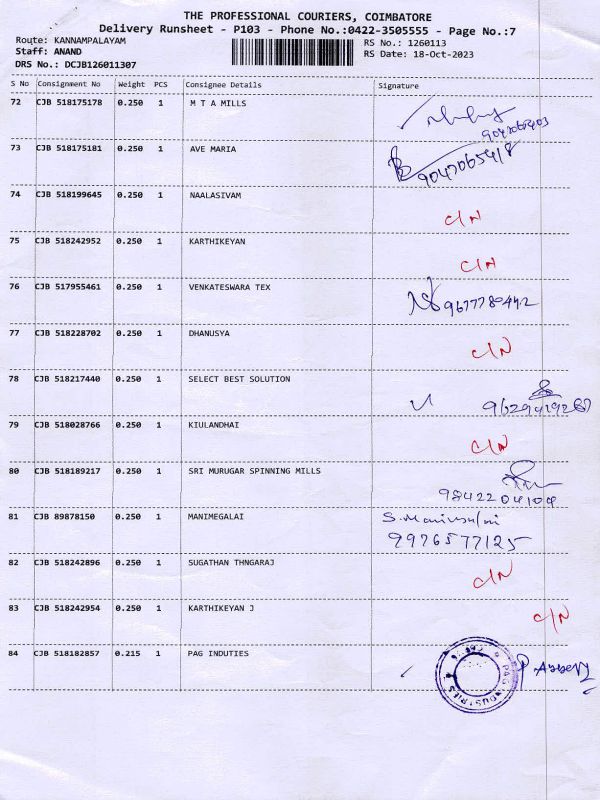 THE PROFESSIONAL COURIERS, COIMBATORE
Delivery Runsheet - P103 - Phone No.:0422-3505555 - Page No.:7
Route: KANNAMPALAYAM RS No.: 1260113
Staff: ANAND RS Date: 18-Oct-2023
DRS No.: DCJB126011307
S No Consignment No Weight PCS Consignee Details Signature
72 CJB 518175178 0.250 1 M T A MILLS
73 CJB 518175181 0.250 1 AVE MARIA 9047065418
74 CJB 518199645 0.250 1 NAALASIVAM C/N
75 CJB 518242952 0.250 1 KARTHIKEYAN C/N
76 CJB 517955461 0.250 1 VENKATESWARA TEX 9677780442
77 CJB 518228702 0.250 1 DHANUSYA C/N
78 CJB 518217440 0.250 1 SELECT BEST SOLUTION
79 CJB 518028766 0.250 1 KIULANDHAI C/N
80 CJB 518189217 0.250 1 SRI MURUGAR SPINNING MILLS
9842204104
81 CJB 89878150 0.250 1 MANIMEGALAI
9976577125
82 CJB 518242896 0.250 1 SUGATHAN THNGARAJ C/N
83 CJB 518242954 0.250 1 KARTHIKEYAN J C/N
84 CJB 518182857 0.215 1 PAG INDUTIES
PAG INDUSTRIES